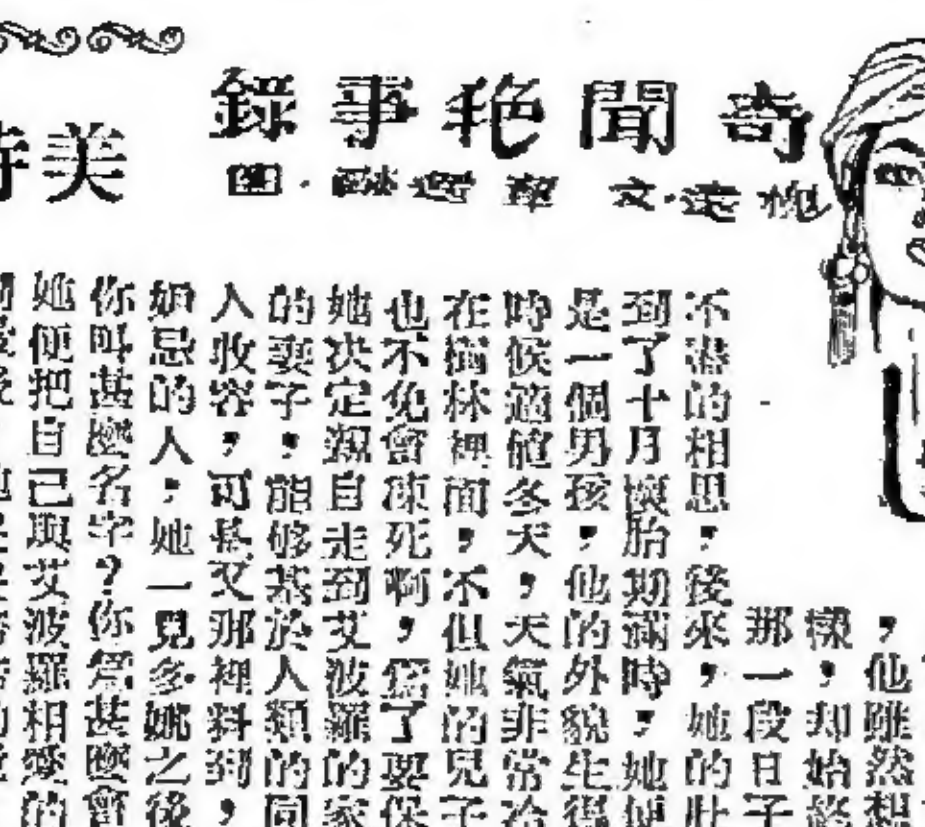 奇聞艳事錄
美
，他雖然想
樣，却始終
那一段日子
不盡的相思，後來，她的肚
到了十月懷胎期滿時，她便
是一個男孩，他的外貌生得
時候適值冬天，天氣非常冷
在樹林裡面，不但她的兒子
也不免會凍死啊，為了要保
她决定親自走到艾波羅的家
的妻子，能够基於人類的同
入收容，可是又那裡料到，
妒忌的人，她一見多姚之後
你叫甚麽名字？你為甚麽會
她便把自己與艾波羅相愛的